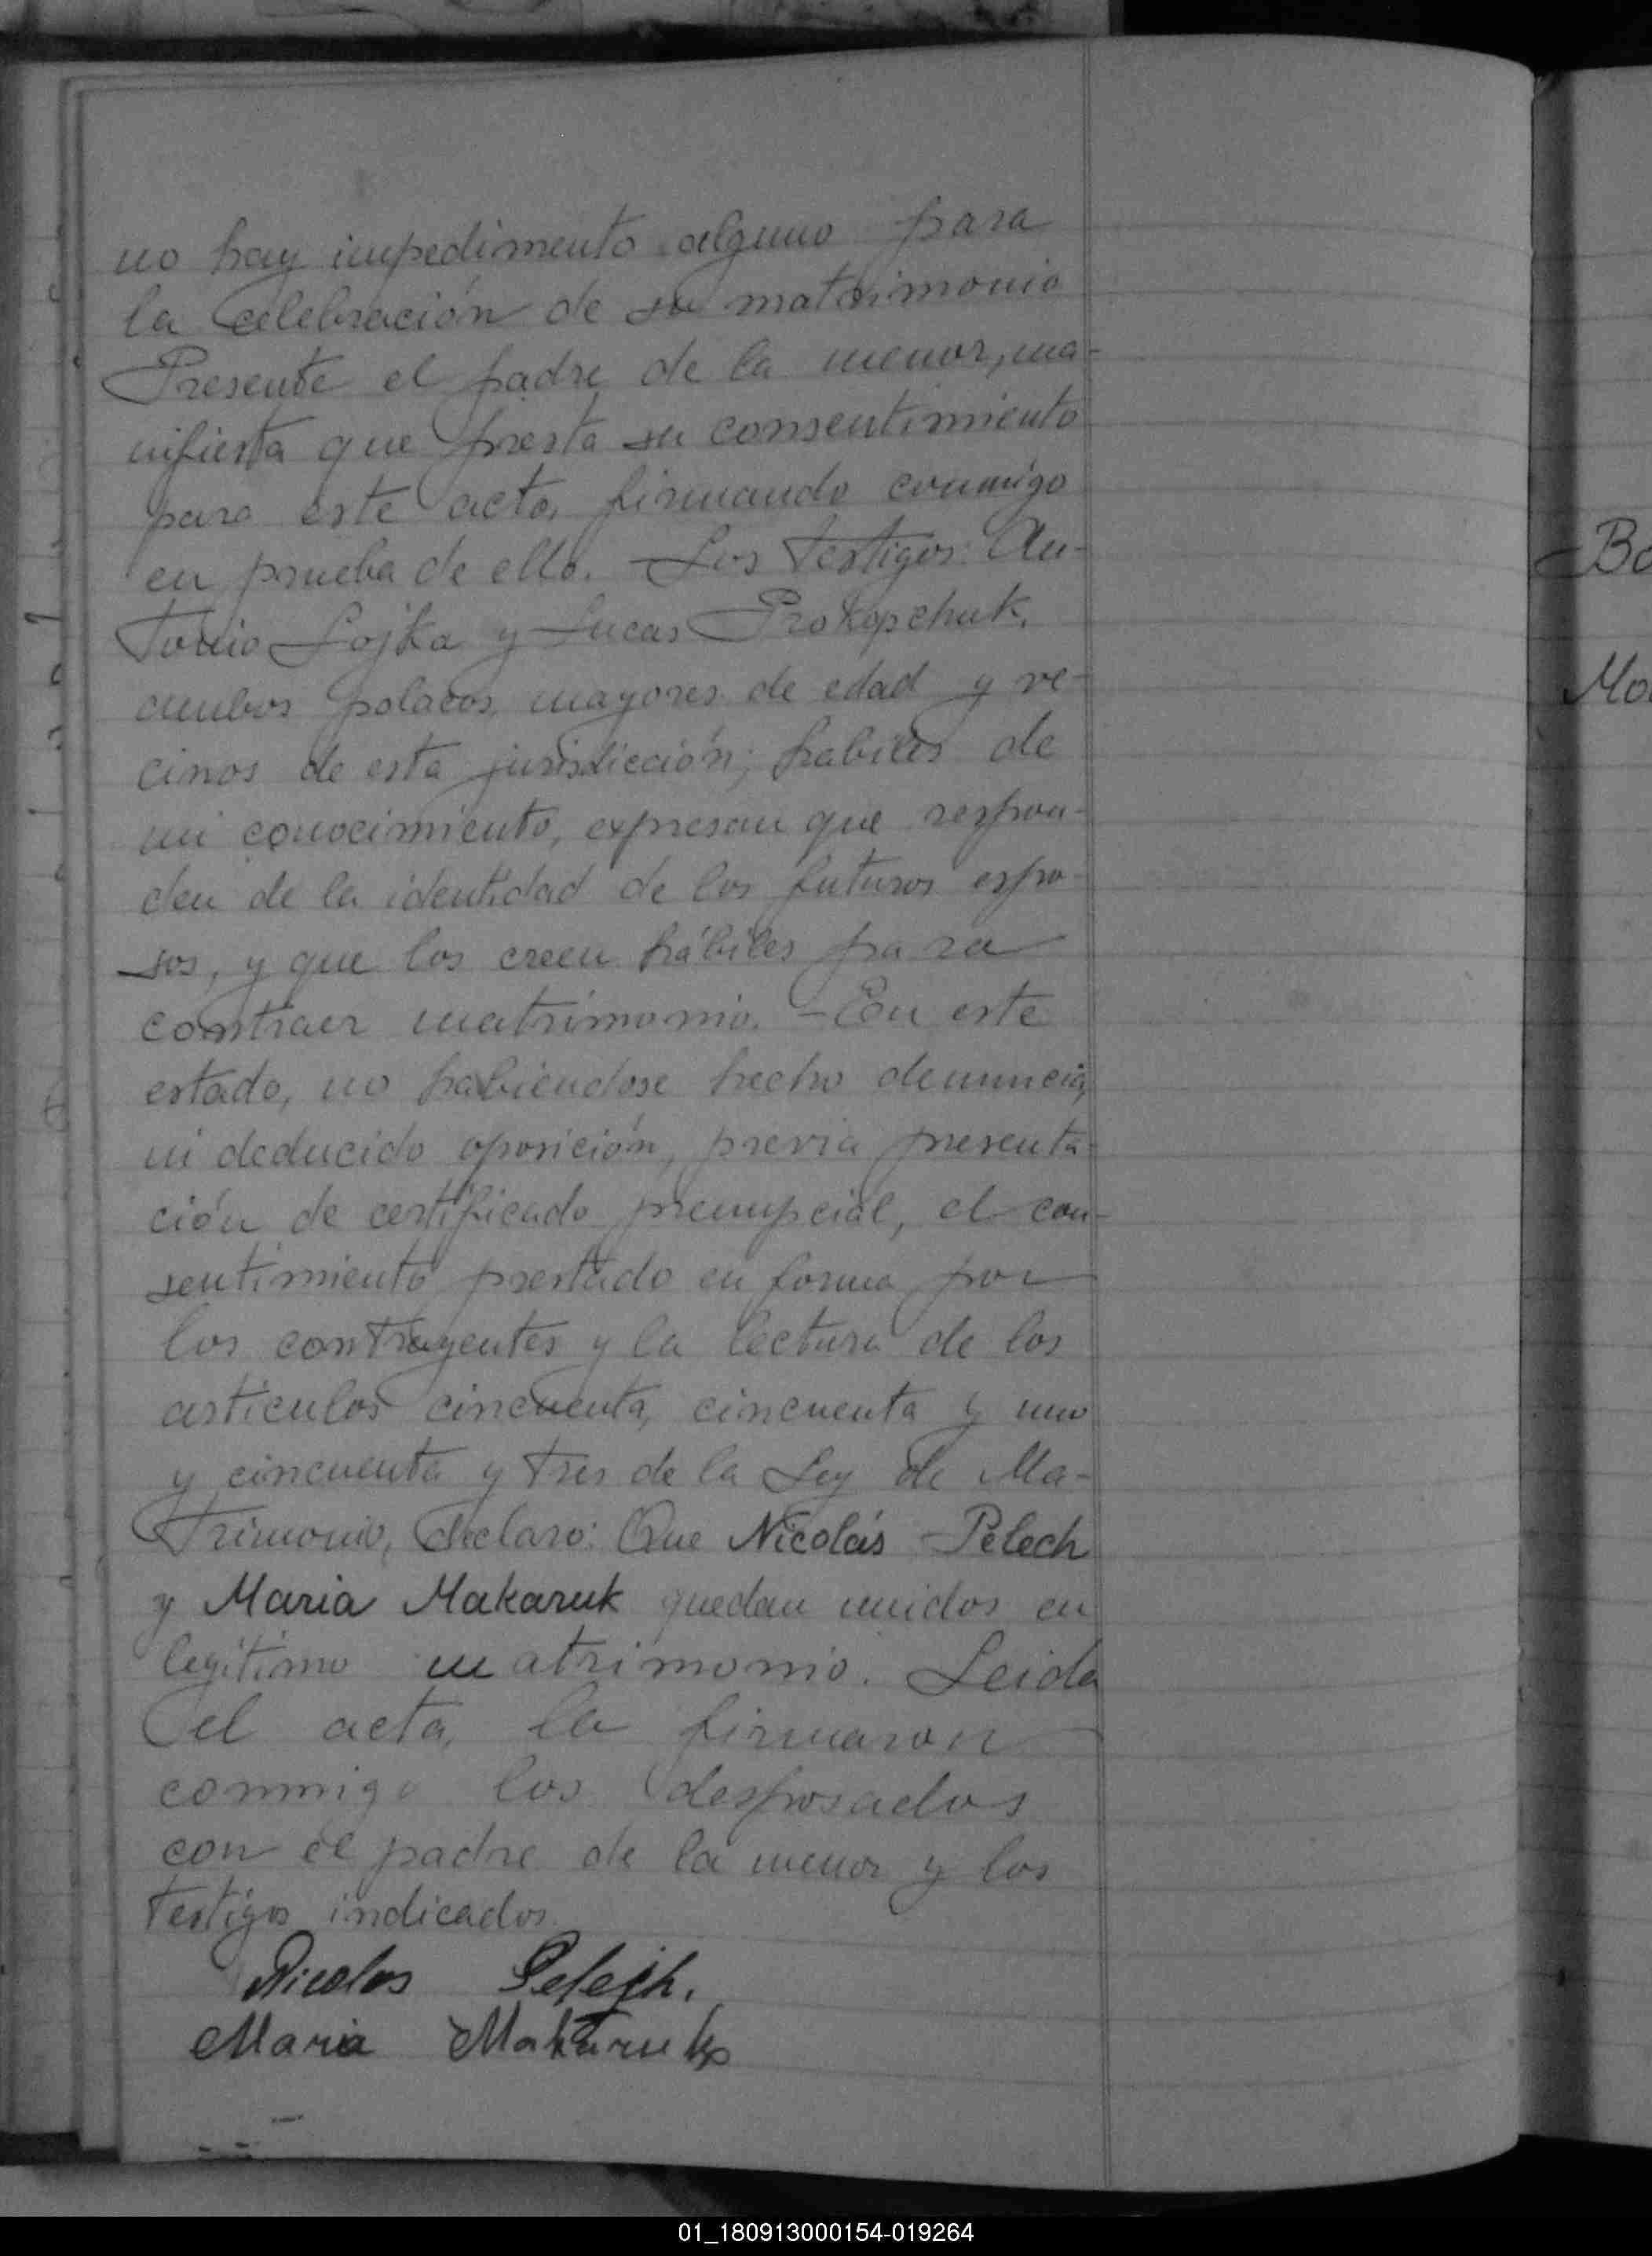 no hay impedimento alguno para
la celebración de su matrimonio
Presente el padre de la menor, ma-
nifiesta que presta su consentimiento
para este acto, firmando conmigo
en prueba de ello. Los testigos: An-
tonio Lojka y Lucas Prokopchuk,
ambos polacos, mayores de edad y ve-
cinos de esta jurisdicción, habiles de
mi conocimiento, expresan que respon-
den de la identidad de los futuros espo-
sos, y que los creen hábiles para
contraer matrimonio. - En este
estado, no habiendose hecho denuncia,
ni deducido oposición, previa presenta-
ción de certificado prenupcial, el con-
sentimiento prestado en forma por
los contrayentes y la lectura de los
articulos cincuenta, cincuenta y uno
y cincuenta y tres de la Ley de Ma-
trimonio, declaro: Que Nicolás Pelech
y Maria Makaruk quedan unidos en
legítimo matrimonio. Leida
el acta, la firmaron
conmigo los desposados
con el padre de la menor y los
testigos indicados.
Nicolas Pelejh.
Maria Makaruk
Bo
Mo
01_180913000154-019264